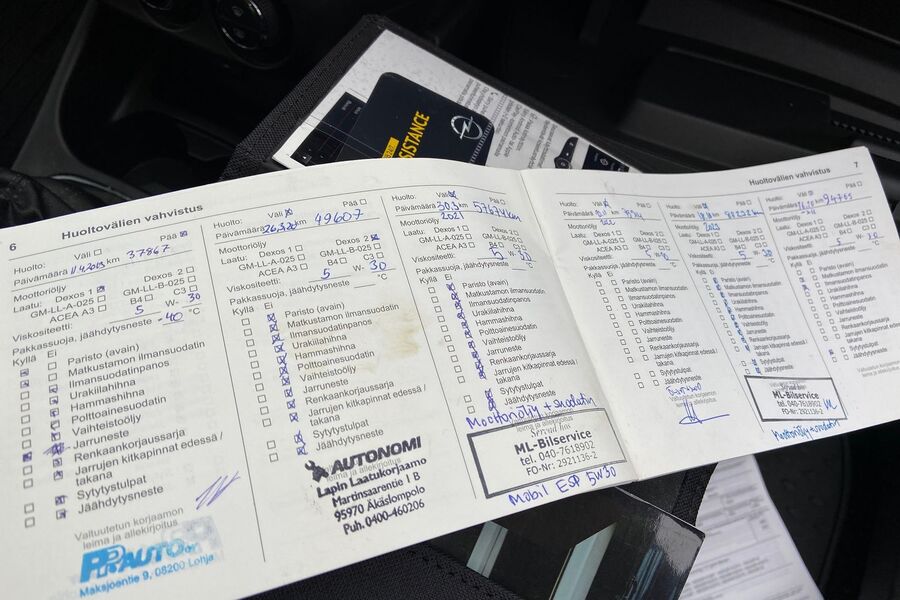 6
Huoltovälien vahvistus
Huolto: Väli Pää
Päivämäärä 11.4.2019 km 37867
Moottoriöljy
Laatu: Dexos 1 Dexos 2
GM-LL-A-025 GM-LL-B-025
ACEA A3 B4 C3
Viskositeetti: 5 W- 30
Pakkassuoja, jäähdytysneste -40 °C
Kyllä Ei
Paristo (avain)
Matkustamon ilmansuodatin
Ilmansuodatinpanos
Urakiilahihna
Hammashihna
Polttoainesuodatin
Vaihteistoöljy
Jarruneste
Renkaankorjaussarja
Jarrujen kitkapinnat edessä /
takana
Sytytystulpat
Jäähdytysneste
Valtuutetun korjaamon
leima ja allekirjoitus
PR AUTO
Maksjoentie 9, 08200 Lohja
Huolto: Väli Pää
Päivämäärä 26.3.20 km 49607
Moottoriöljy
Laatu: Dexos 1 Dexos 2
GM-LL-A-025 GM-LL-B-025
ACEA A3 B4 C3
Viskositeetti: 5 W- 30
Pakkassuoja, jäähdytysneste °C
Kyllä Ei
Paristo (avain)
Matkustamon ilmansuodatin
Ilmansuodatinpanos
Urakiilahihna
Hammashihna
Polttoainesuodatin
Vaihteistoöljy
Jarruneste
Renkaankorjaussarja
Jarrujen kitkapinnat edessä /
takana
Sytytystulpat
Jäähdytysneste
AUTONOMI
Lapin Laatukorjaamo
Martinsaarentie 1 B
95970 Äkäslompolo
Puh. 0400-460206
Huolto: Väli Pää
Päivämäärä 30.3 km
2021
Moottoriöljy
Laatu: Dexos 1 Dexos 2
GM-LL-A-025 GM-LL-B-025
ACEA A3 B4 C3
Viskositeetti: 5 W- 30
Pakkassuoja, jäähdytysneste °C
Kyllä Ei
Paristo (avain)
Matkustamon ilmansuodatin
Ilmansuodatinpanos
Urakiilahihna
Hammashihna
Polttoainesuodatin
Vaihteistoöljy
Jarruneste
Renkaankorjaussarja
Jarrujen kitkapinnat edessä /
takana
Sytytystulpat
Jäähdytysneste
Moottoriöljy + suodatin
ML-Bilservice
tel. 040-7618902
FO-Nr: 2921136-2
Mobil ESP 5W30
Huoltovälien vahvistus
7
Huolto: Väli Pää
Päivämäärä km
Moottoriöljy
Laatu: Dexos 1 Dexos 2
GM-LL-A-025 GM-LL-B-025
ACEA A3 B4 C3
Viskositeetti: W-
Pakkassuoja, jäähdytysneste °C
Kyllä Ei
Paristo (avain)
Matkustamon ilmansuodatin
Ilmansuodatinpanos
Urakiilahihna
Hammashihna
Polttoainesuodatin
Vaihteistoöljy
Jarruneste
Renkaankorjaussarja
Jarrujen kitkapinnat edessä /
takana
Sytytystulpat
Jäähdytysneste
Huolto: Väli Pää
Päivämäärä km
2023
Moottoriöljy
Laatu: Dexos 1 Dexos 2
GM-LL-A-025 GM-LL-B-025
ACEA A3 B4 C3
Viskositeetti: 5 W- 30
Pakkassuoja, jäähdytysneste °C
Kyllä Ei
ML-Bilservice
tel. 040-7618902
FO-Nr: 2921136-2
Moottoriöljy + suodatin
Huolto: Väli Pää
Päivämäärä km 94755
Moottoriöljy
Laatu: Dexos 1 Dexos 2
GM-LL-A-025 GM-LL-B-025
ACEA A3 B4 C3
Viskositeetti: 5 W- 30
Pakkassuoja, jäähdytysneste °C
Kyllä Ei
Paristo (avain)
Matkustamon ilmansuodatin
Ilmansuodatinpanos
Urakiilahihna
Hammashihna
Polttoainesuodatin
Vaihteistoöljy
Jarruneste
Renkaankorjaussarja
Jarrujen kitkapinnat edessä /
takana
Sytytystulpat
Jäähdytysneste
Valtuutetun korjaamon
leima ja allekirjoitus